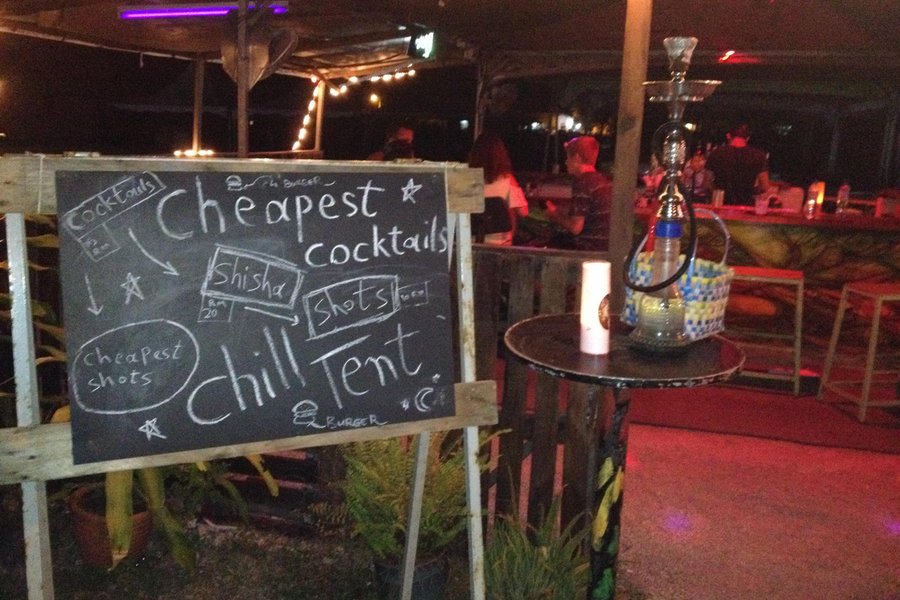 BURGER
Cocktails
Cheapest
cocktails
Shisha
RM
20
Shots
cheapest
shots
Chill Tent
BURGER